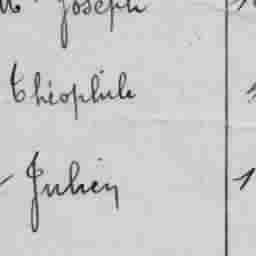 Joseph
Théophile
Julien